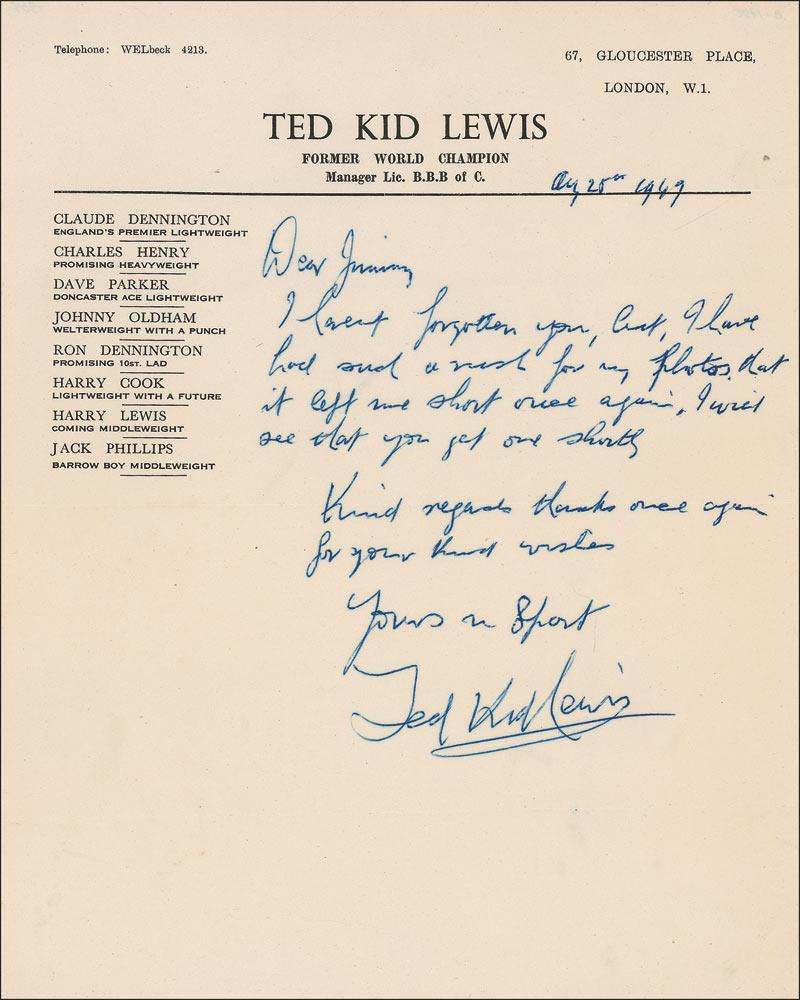 Telephone: WELbeck 4213.
67, GLOUCESTER PLACE,
LONDON, W.1.
TED KID LEWIS
FORMER WORLD CHAMPION
Manager Lic. B.B.B of C.
1949
CLAUDE DENNINGTON
ENGLAND'S PREMIER LIGHTWEIGHT
CHARLES HENRY
PROMISING HEAVYWEIGHT
DAVE PARKER
DONCASTER ACE LIGHTWEIGHT
JOHNNY OLDHAM
WELTERWEIGHT WITH A PUNCH
RON DENNINGTON
PROMISING 10ST. LAD
HARRY COOK
LIGHTWEIGHT WITH A FUTURE
HARRY LEWIS
COMING MIDDLEWEIGHT
JACK PHILLIPS
BARROW BOY MIDDLEWEIGHT
Dear Jimmy
I havent forgotten you, but, I have
had such a rush for my photos, that
it left me short once again, I will
see that you get one shortly
Kind regards thanks once again
for your kind wishes
Yours in Sport
Ted Kid Lewis